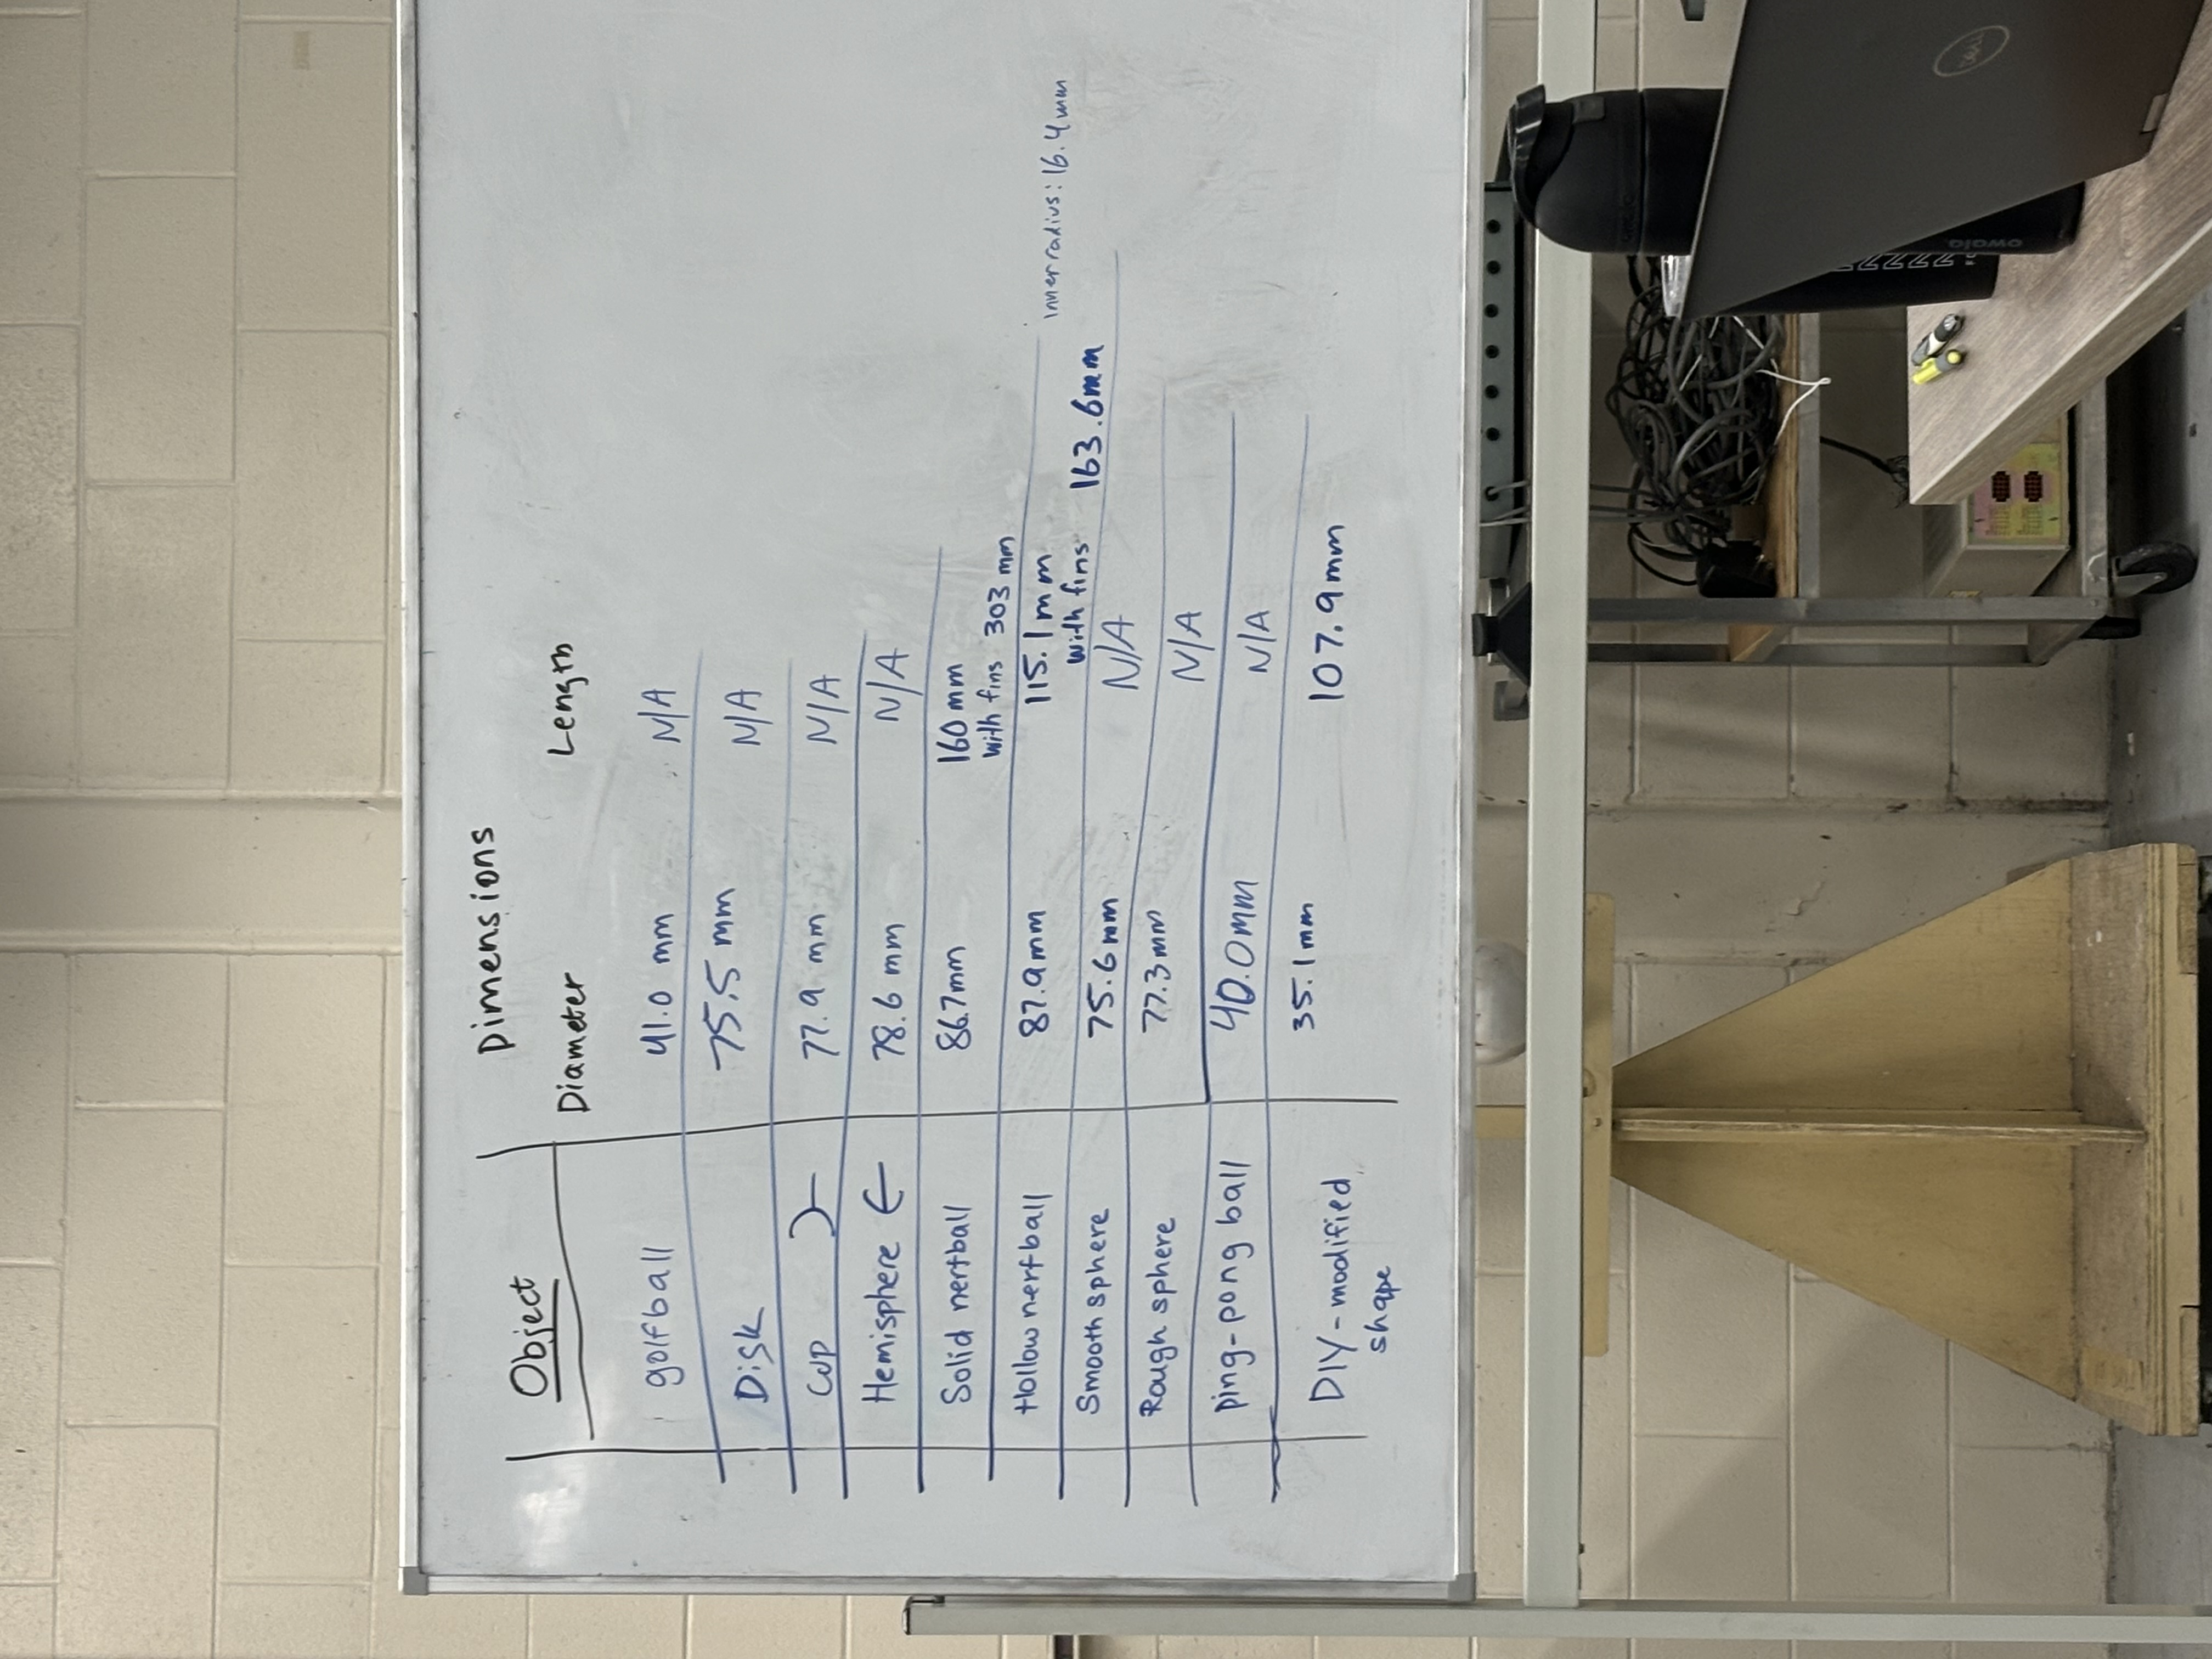 Dimensions
Object
Diameter Length
golfball 41.0 mm N/A
Disk 75.5 mm N/A
Cup 77.9 mm N/A
Hemisphere 78.6 mm N/A
Solid nerfball 86.7mm 160 mm
with fins 303 mm
Hollow nerfball 87.9mm 115.1mm inner radius: 16.4mm
with fins 163.6mm
Smooth sphere 75.6mm N/A
Rough sphere 77.3mm N/A
ping-pong ball 40.0mm N/A
DIY-modified 35.1mm 107.9mm
shape
owala
DELL